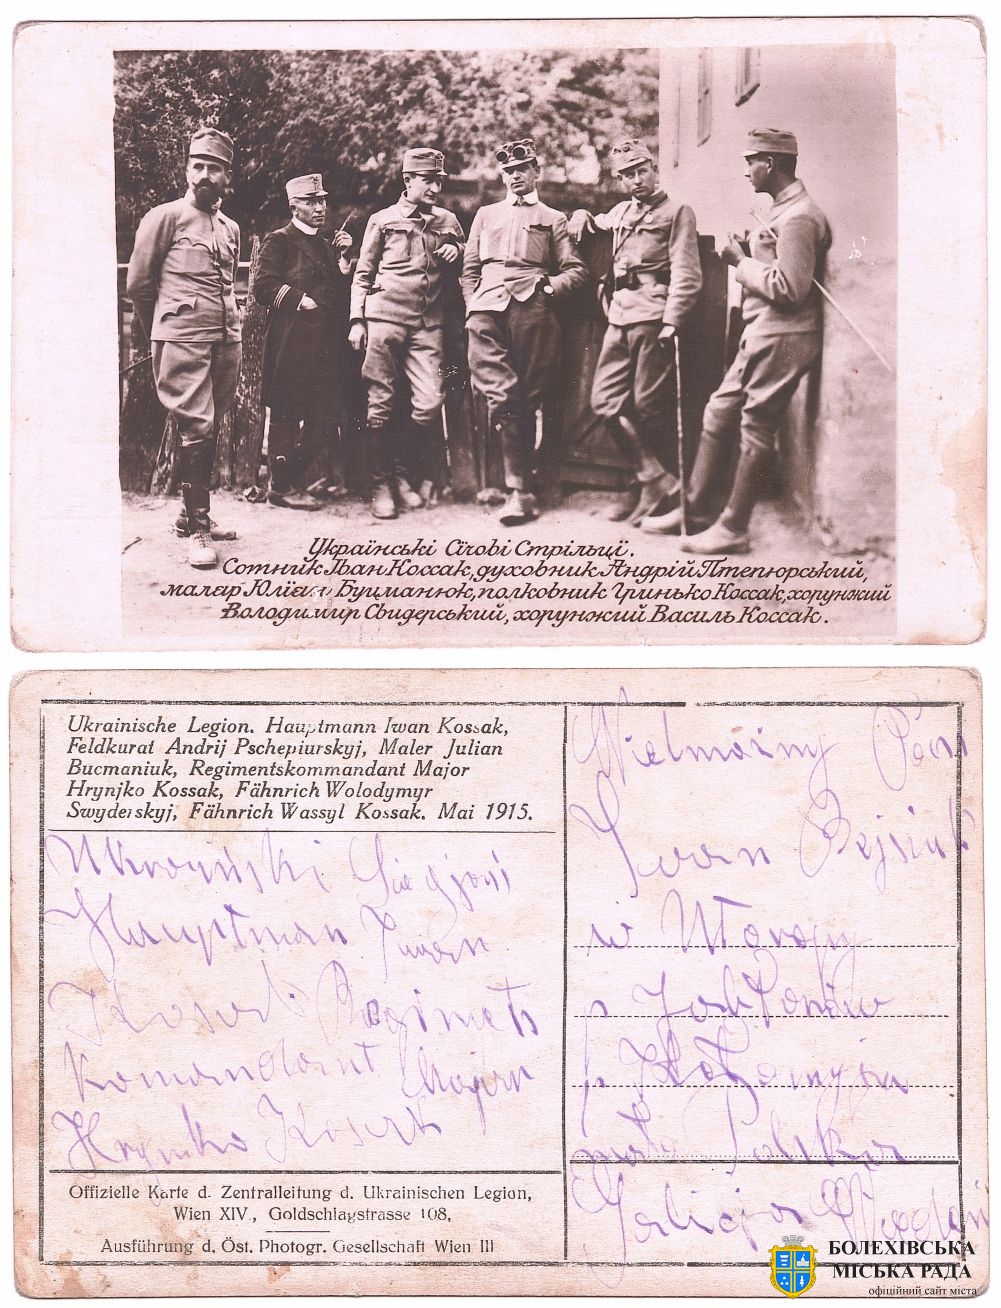 Українські Січові Стрільці.
Сотник Іван Коссак, духовник Андрій Птепюрський,
маляр Юліян Буцманюк, полковник Гринько Коссак, хорунжий
Володимир Свидерський, хорунжий Василь Коссак.
Ukrainische Legion. Hauptmann Iwan Kossak,
Feldkurat Andrij Pschepiurskyj, Maler Julian
Bucmaniuk, Regimentskommandant Major
Hrynjko Kossak, Fähnrich Wolodymyr
Swyderskyj, Fähnrich Wassyl Kossak. Mai 1915.
Ukraiński
Hauptman Iwan
Kosak
Komandant Major
Hrynko Kosak
Offizielle Karte d. Zentralleitung d. Ukrainischen Legion,
Wien XIV., Goldschlagstrasse 108,
Ausführung d. Öst. Photogr. Gesellschaft Wien III
Wielmożny Pan
Iwan
w Utoropy
p Jabłonów
p Kołomyja
mało Polska
Galicja
БОЛЕХІВСЬКА
МІСЬКА РАДА
офіційний сайт міста